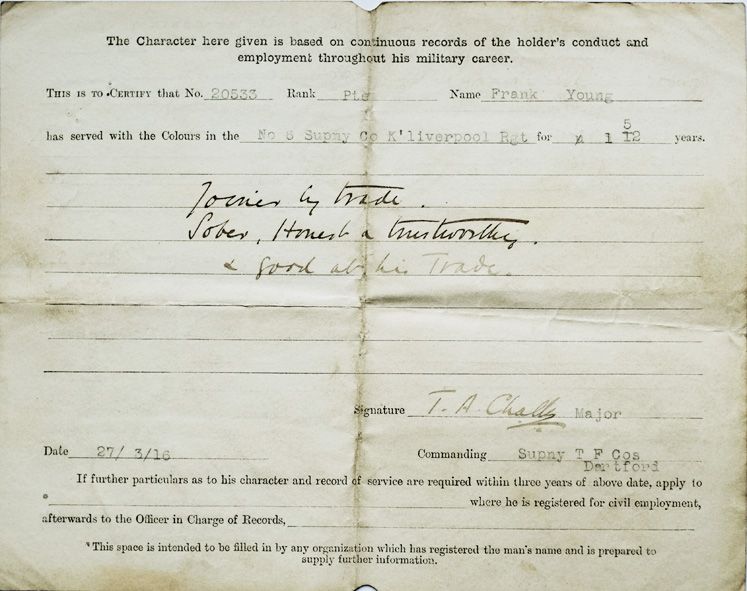 The Character here given is based on continuous records of the holder's conduct and
employment throughout his military career.
THIS IS TO CERTIFY that No. 20533 Rank Pte Name Frank Young
has served with the Colours in the No 6 Supny Co K'liverpool Rgt for 1 5/12 years.
Joiner by trade.
Sober, Honest & trustworthy.
& good at his Trade.
Signature T. A. Major
Date 27/ 3/16 Commanding Supny T F Cos
Dartford
If further particulars as to his character and record of service are required within three years of above date, apply to
* where he is registered for civil employment,
afterwards to the Officer in Charge of Records,
*This space is intended to be filled in by any organization which has registered the man's name and is prepared to
supply further information.